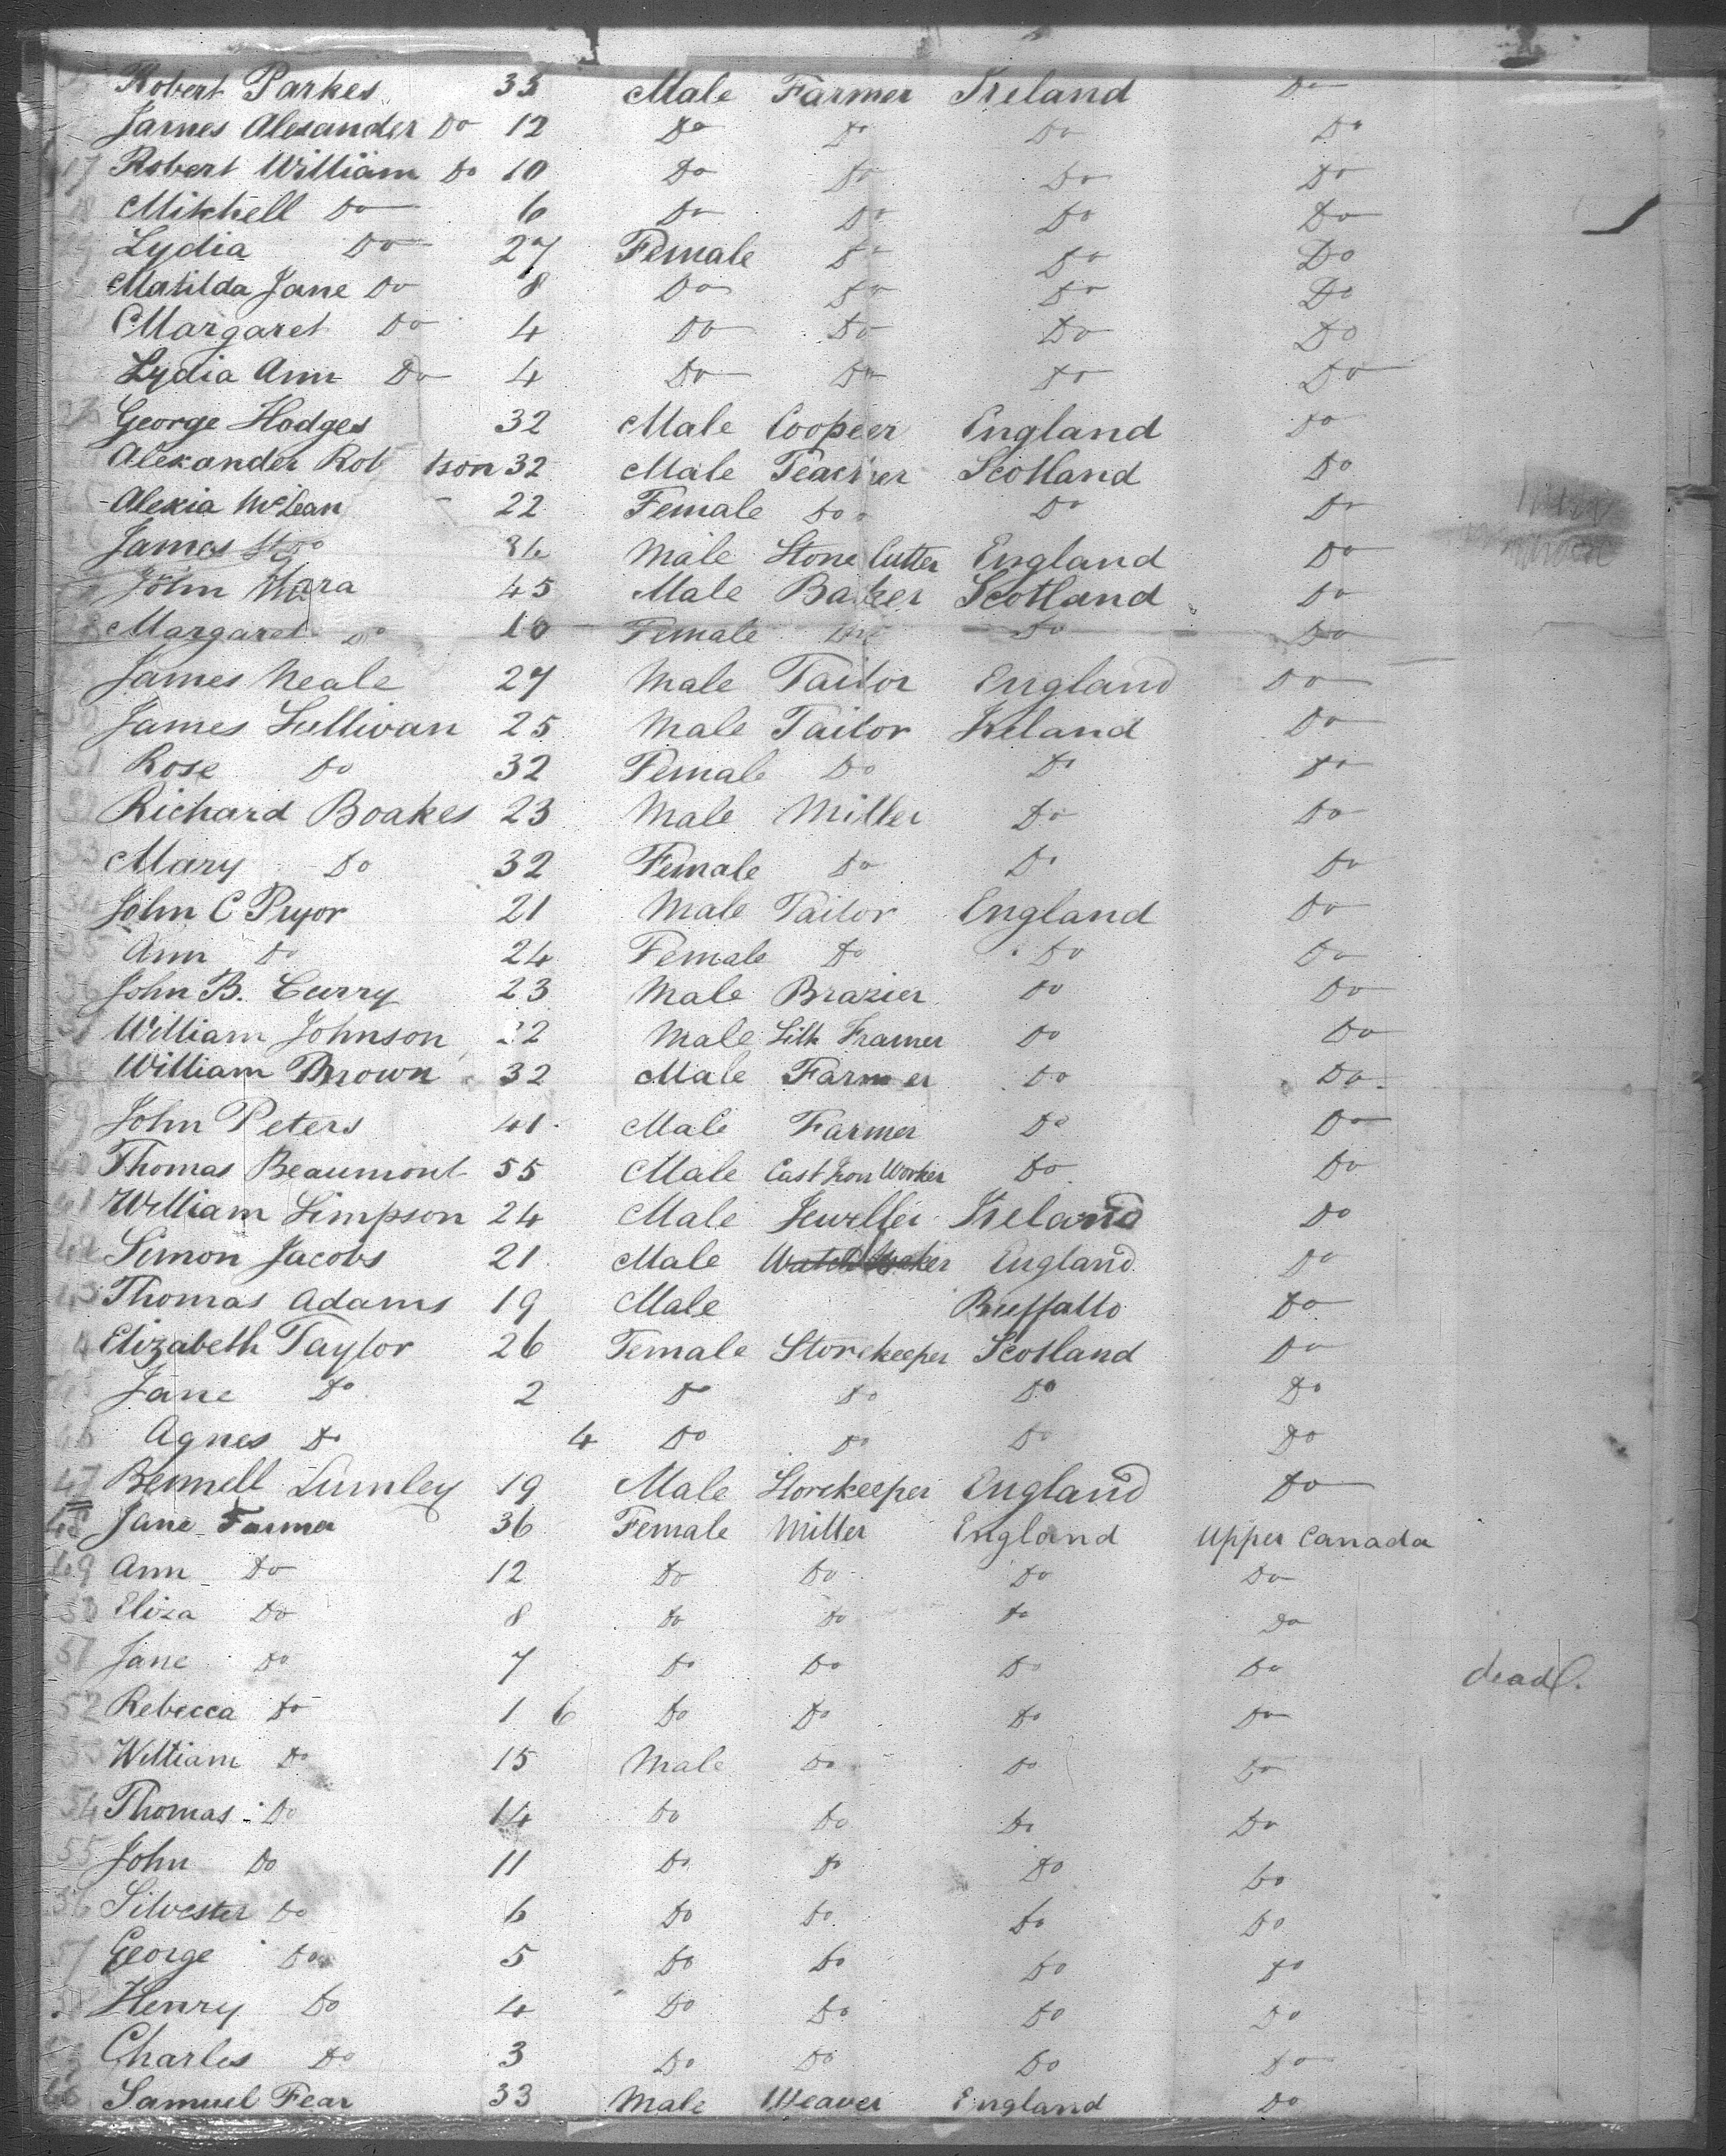 Robert Parkes 33 Male Farmer Ireland Do
James Alexander Do 12 Do Do Do Do
17 Robert William Do 10 Do Do Do Do
18 Mitchell Do 6 Do Do Do Do
19 Lydia Do 27 Female Do Do Do
Matilda Jane Do 8 Do Do Do Do
21 Margaret Do 4 Do Do Do Do
Lydia Ann Do 4 Do Do Do Do
23 George Hodges 32 Male Cooper England Do
Alexander Rob tson 32 Male Teacher Scotland Do
25 Alexia McLean 22 Female Do Do Do
26 James Do Male Stone Cutter England Do
John Mara 45 Male Baker Scotland Do
28 Margaret Do 10 Female Do Do Do
James Neale 27 Male Tailor England Do
30 James Sullivan 25 Male Tailor Ireland Do
31 Rose Do 32 Female Do Do Do
32 Richard Boakes 23 Male Miller Do Do
33 Mary Do 32 Female Do Do Do
34 John C Pryor 21 Male Tailor England Do
35 Ann Do 24 Female Do Do Do
36 John B. Curry 23 Male Brazier Do Do
37 William Johnson 22 Male Silk Framer Do Do
38 William Brown 32 Male Farmer Do Do
39 John Peters 41 Male Farmer Do Do
40 Thomas Beaumont 55 Male Cast Iron Worker Do Do
41 William Simpson 24 Male Jeweller Ireland Do
42 Simon Jacobs 21 Male Watch Maker England Do
43 Thomas Adams 19 Male Buffallo Do
44 Elizabeth Taylor 26 Female Storekeeper Scotland Do
45 Jane Do 2 Do Do Do Do
46 Agnes Do 4 Do Do Do Do
47 Bennell Lumley 19 Male Storekeeper England Do
48 Jane Farmer 36 Female Miller England Upper Canada
49 Ann Do 12 Do Do Do Do
50 Eliza Do 8 Do Do Do Do
51 Jane Do 7 Do Do Do Do dead.
52 Rebecca Do 1 6 Do Do Do Do
53 William Do 15 Male Do Do Do
54 Thomas Do 14 Do Do Do Do
55 John Do 11 Do Do Do Do
56 Silvester Do 6 Do Do Do Do
57 George Do 5 Do Do Do Do
58 Henry Do 4 Do Do Do Do
59 Charles Do 3 Do Do Do Do
60 Samuel Fear 33 Male Weaver England Do